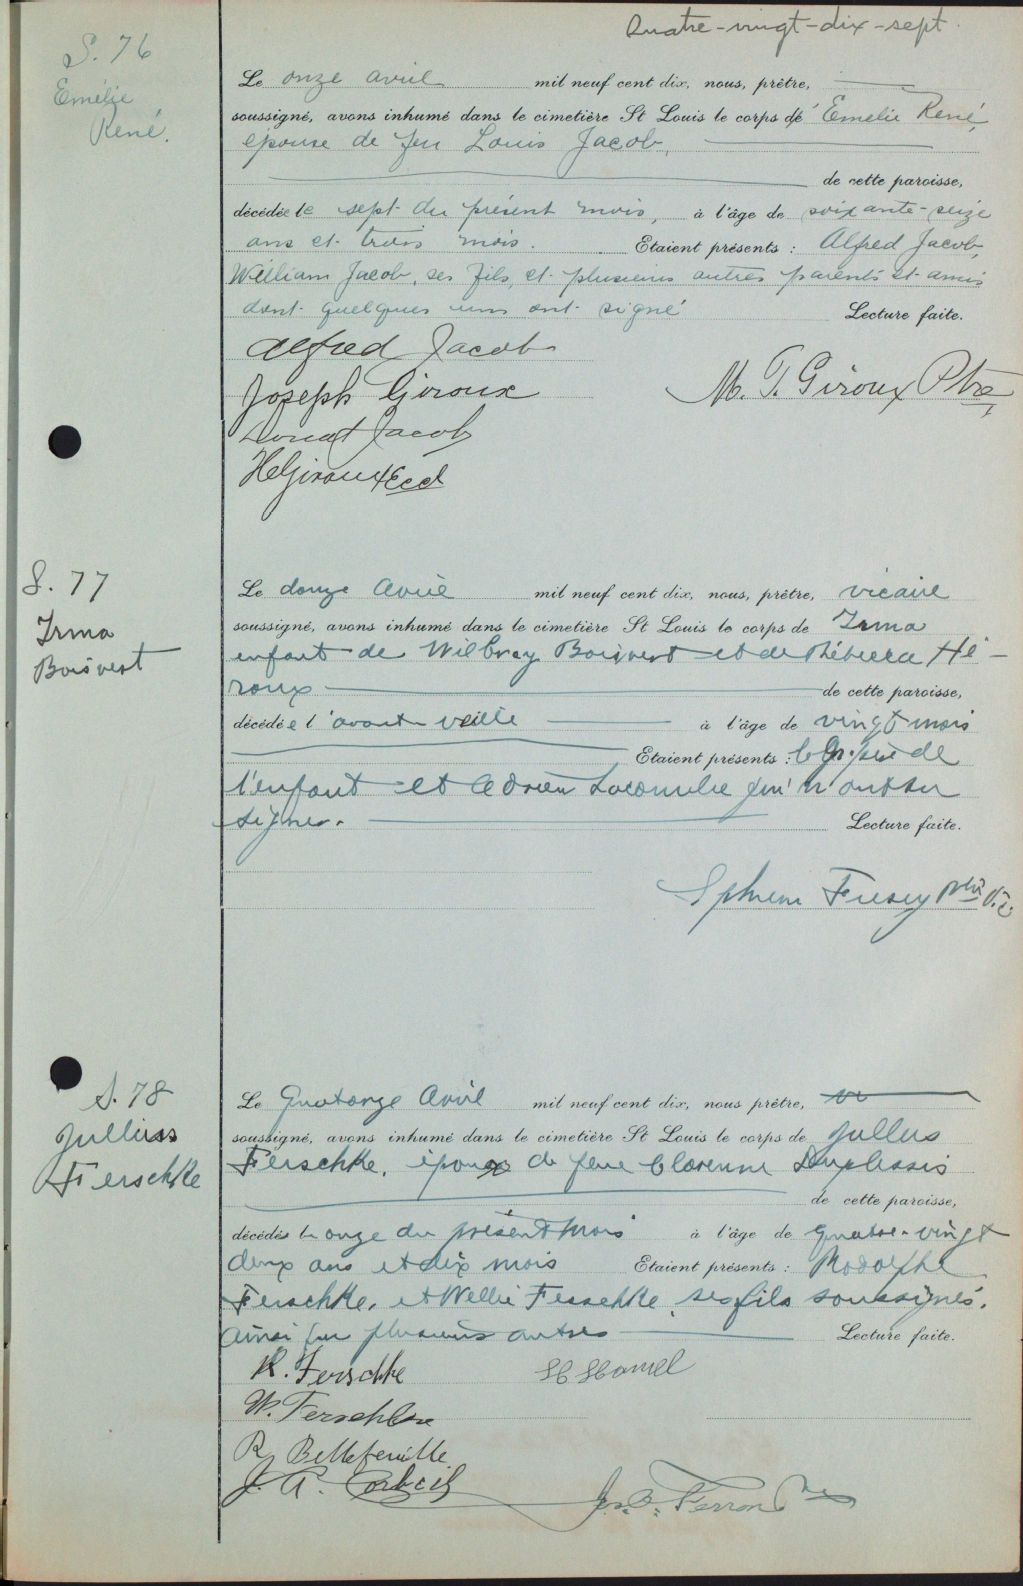 Quatre-vingt-dix-sept.
S. 76
Emélie
René.
Le onze avril mil neuf cent dix, nous, prêtre,
soussigné, avons inhumé dans le cimetière St Louis le corps d' Emelie René,
épouse de feu Louis Jacob,
de cette paroisse,
décédée le sept du présent mois, à l'âge de soixante-seize
ans et trois mois. Etaient présents : Alfred Jacob,
William Jacob, ses fils, et plusieurs autres parents et amis
dont quelques uns ont signé Lecture faite.
Alfred Jacob
Joseph Giroux M. T. Giroux Ptre
Donat Jacob
H Giroux Eccl
S. 77
Irma
Boisvert
Le douze Avril mil neuf cent dix, nous, prêtre, vicaire
soussigné, avons inhumé dans le cimetière St Louis le corps de Irma
enfant de Wilbray Boisvert et de Rébecca Hé-
roux de cette paroisse,
décédée l'avant veille à l'âge de vingt mois
Etaient présents : le père de
l'enfant et Adrien Lacombe qui n'ont su
signer. Lecture faite.
Ephrem Fusey ptre Vic
S. 78
Jullius
Ferschke
Le Quatorze Avril mil neuf cent dix, nous prêtre,
soussigné, avons inhumé dans le cimetière St Louis le corps de Jullus
Ferschke, époux de feue Clarenne Duplessis
de cette paroisse,
décédé le onze du présent mois à l'âge de quatre-vingt
deux ans et dix mois Etaient présents : Rodolphe
Ferschke, et Wellie Ferschke, ses fils soussignés,
ainsi que plusieurs autres Lecture faite.
R. Ferschke H Hamel
W. Ferschke
R Bellefeuille
J. A. Corbeil Jos. Ferron Ptre